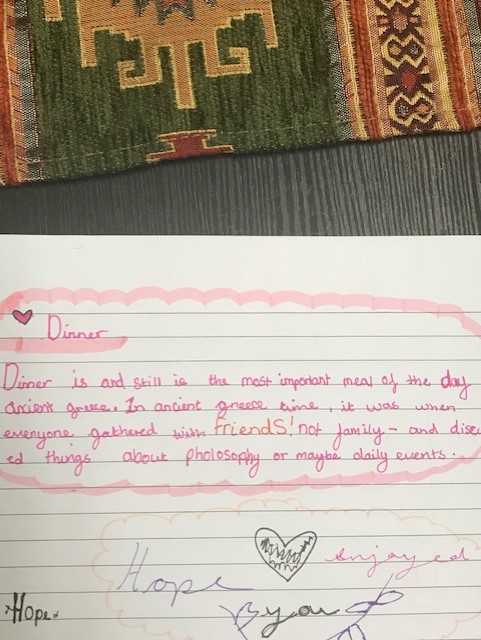 Dinner
Dinner is and still is the most important meal of the day
ancient greece. In ancient greece time, it was when
everyone gathered with friends! not family - and discu
ed things about pholosophy or maybe daily events.
Hope enjoyed
Hope. By you